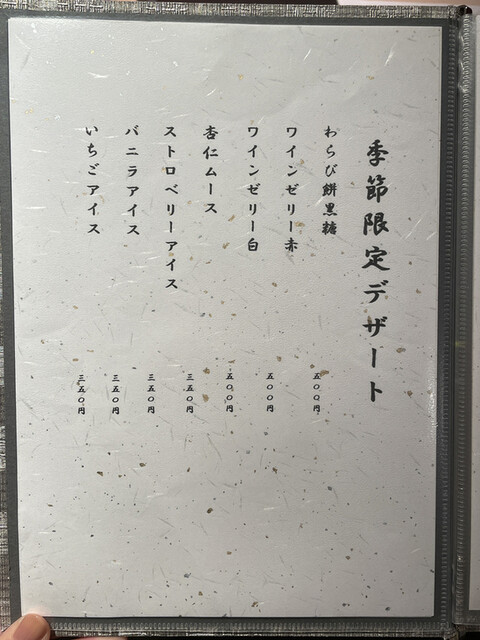 季節限定デザート
わらび餅黒糖 五〇〇円
ワインゼリー赤 五〇〇円
ワインゼリー白 五〇〇円
杏仁ムース 三五〇円
ストロベリーアイス 三五〇円
バニラアイス 三五〇円
いちごアイス 三五〇円